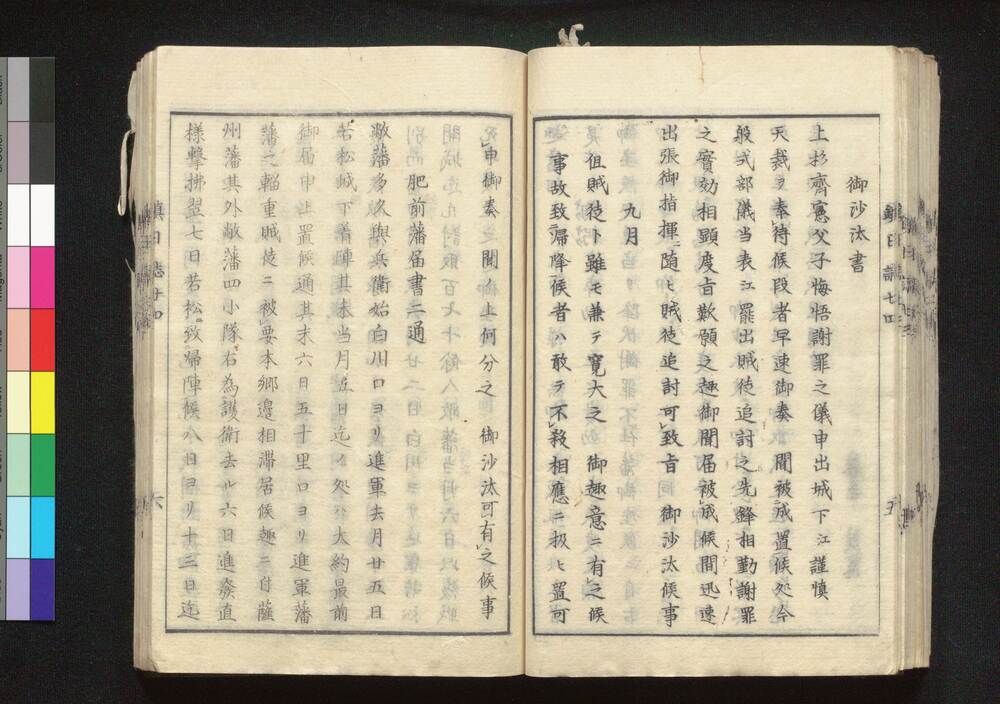 御沙汰書
上杉齊憲父子悔悟謝罪之儀申出城下江謹慎
天裁ヲ奉待候段者早速御奏聞被成置候処今
般式部儀当表江罷出賊徒追討之先鋒相勤謝罪
之實効相顕度旨歎願之趣御聞届被成候間迅速
出張御指揮ニ随ヒ賊徒追討可致旨御沙汰候事
九月
徂賊徒ト雖モ兼テ寛大之御趣意ニ有之候
事故致帰降候者ハ敢テ不殺相應ニ扱ヒ置可
申御奏聞之上何分之御沙汰可有之候事
肥前藩届書二通
敝藩多久與兵衛始白川口ヨリ進軍去月廿五日
若松城下着陣其末当月五日迄ノ処ハ大約最前
御届申上置候通其末六日五十里口ヨリ進軍藩
藩之輜重賊徒ニ被要本郷邊相滞居候趣ニ付薩
州藩其外敝藩四小隊右為護衛去ル六日進發直
様撃拂翌七日若松致帰陣候八日ヨリ十三日迄
六
五